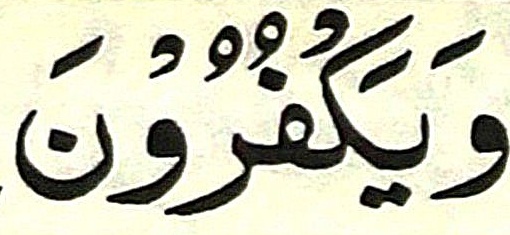 وَيَكْفُرُوْنَ